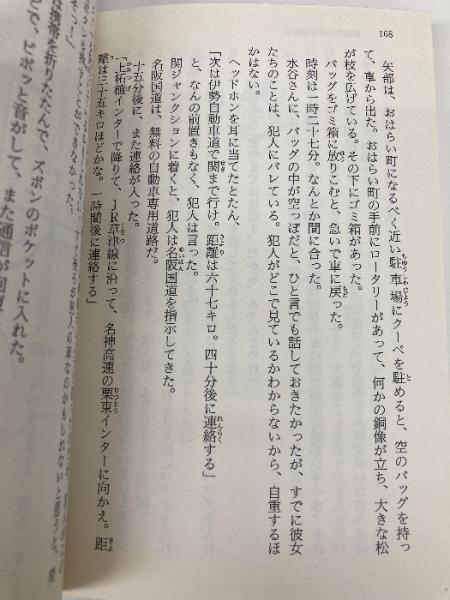 168
矢部は、おはらい町になるべく近い駐車場にクーペを駐めると、空のバッグを持っ
て、車から出た。おはらい町の手前にロータリーがあって、何かの銅像が立ち、大きな松
が枝を広げている。その下にゴミ箱があった。
バッグをゴミ箱に放りこむと、急いで車に戻った。
時刻は一時二十七分。なんとか間に合った。
水谷さんに、バッグの中が空っぽだと、ひと言でも話しておきたかったが、すでに彼女
たちのことは、犯人にバレている。犯人がどこで見ているかわからないから、自重するほ
かはない。
ヘッドホンを耳に当てたとたん、
「次は伊勢自動車道で関まで行け。距離は六十七キロ。四十分後に連絡する」
と、なんの前置きもなく、犯人は言った。
関ジャンクションに着くと、犯人は名阪国道を指示してきた。
名阪国道は、無料の自動車専用道路だ。
十五分後に、また連絡が入った。
「上柘植インターで降りて、JR草津線に沿って、名神高速の栗東インターに向かえ。距
離は三十五キロほどかな。一時間後に連絡する」
は携帯を折りたたんで、ズボンのポケットに入れた。
ピポッと音がして、また通信が